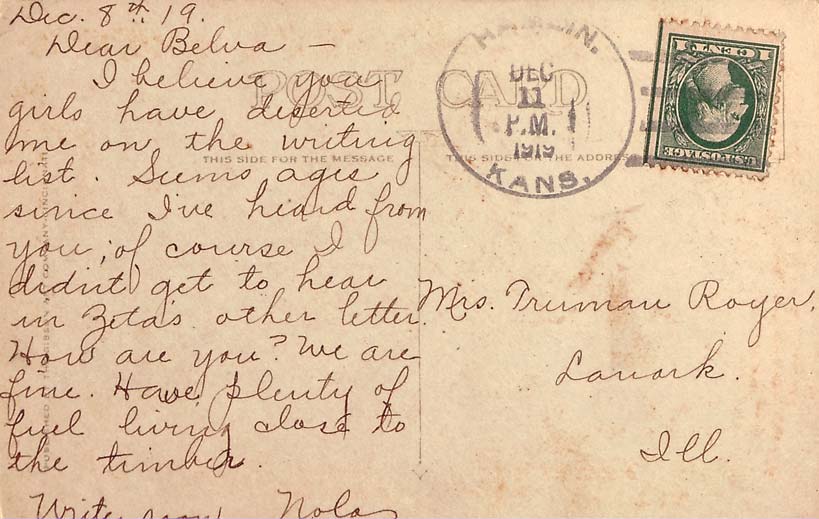 Dec. 8th 19.
Dear Belva —
I believe you
girls have deserted
me on the writing
list. Seems ages
since I've heard from
you; of course I
didn't get to hear
in Zeta's other letter.
How are you? We are
fine. Have plenty of
fuel living close to
the timber.
Write soon Nola
POST CARD
THIS SIDE FOR THE MESSAGE
THIS SIDE THE ADDRESS
HAMLIN.
DEC
11
P.M.
1919
KANS.
1 CENT 1
U.S. POSTAGE
Mrs. Truman Royer.
Lanark.
Ill.